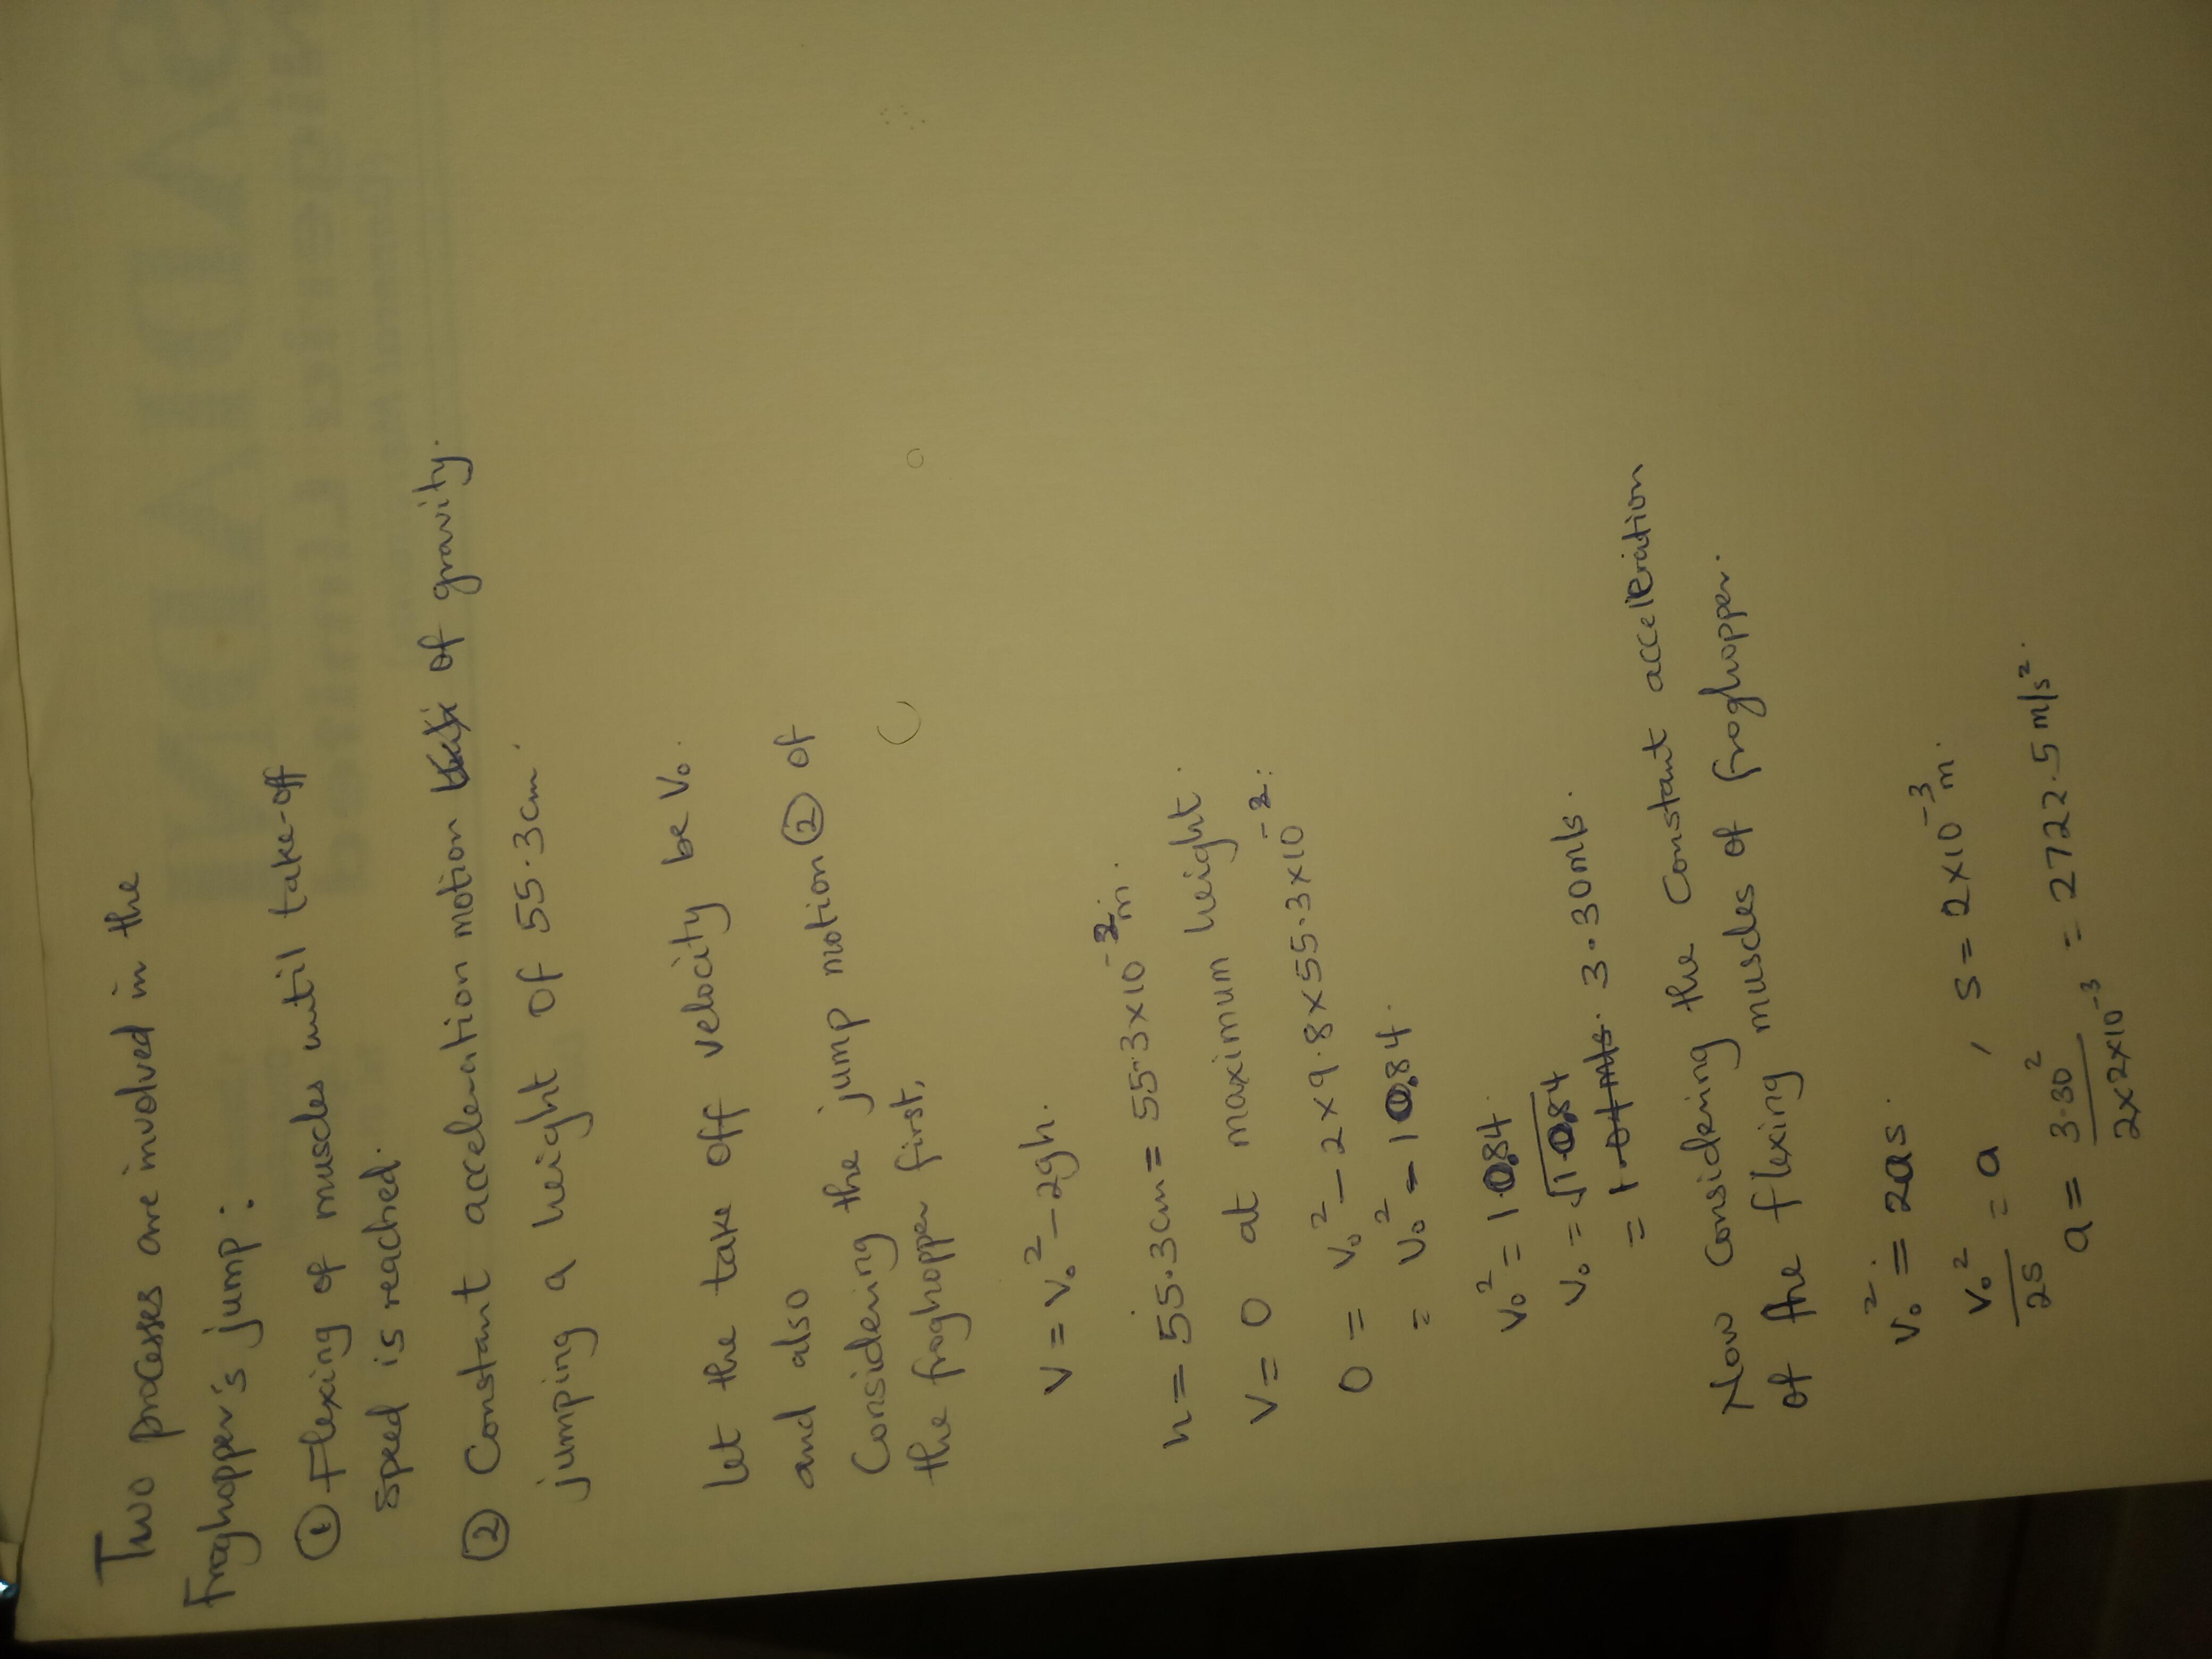 Two processes are involved in the
Froghopper's jump:
① Flexing of muscles until take-off
speed is reached.
② Constant acceleration motion of gravity.
jumping a height of 55.3cm.
Let the take off velocity be V₀.
and also
Considering the jump motion ② of
the froghopper first,
V = V₀² - 2gh.
h = 55.3cm = 55.3×10⁻²m.
V = 0 at maximum height.
0 = V₀² - 2×9.8×55.3×10⁻²
= V₀² - 10.84.
V₀² = 10.84.
V₀ = √10.84
= 3.30m/s.
Now considering the constant acceleration
of the flexing muscles of froghopper.
V₀² = 2as.
V₀²/2s = a , s = 2×10⁻³m.
a = 3.30²/2×2×10⁻³ = 2722.5 m/s².